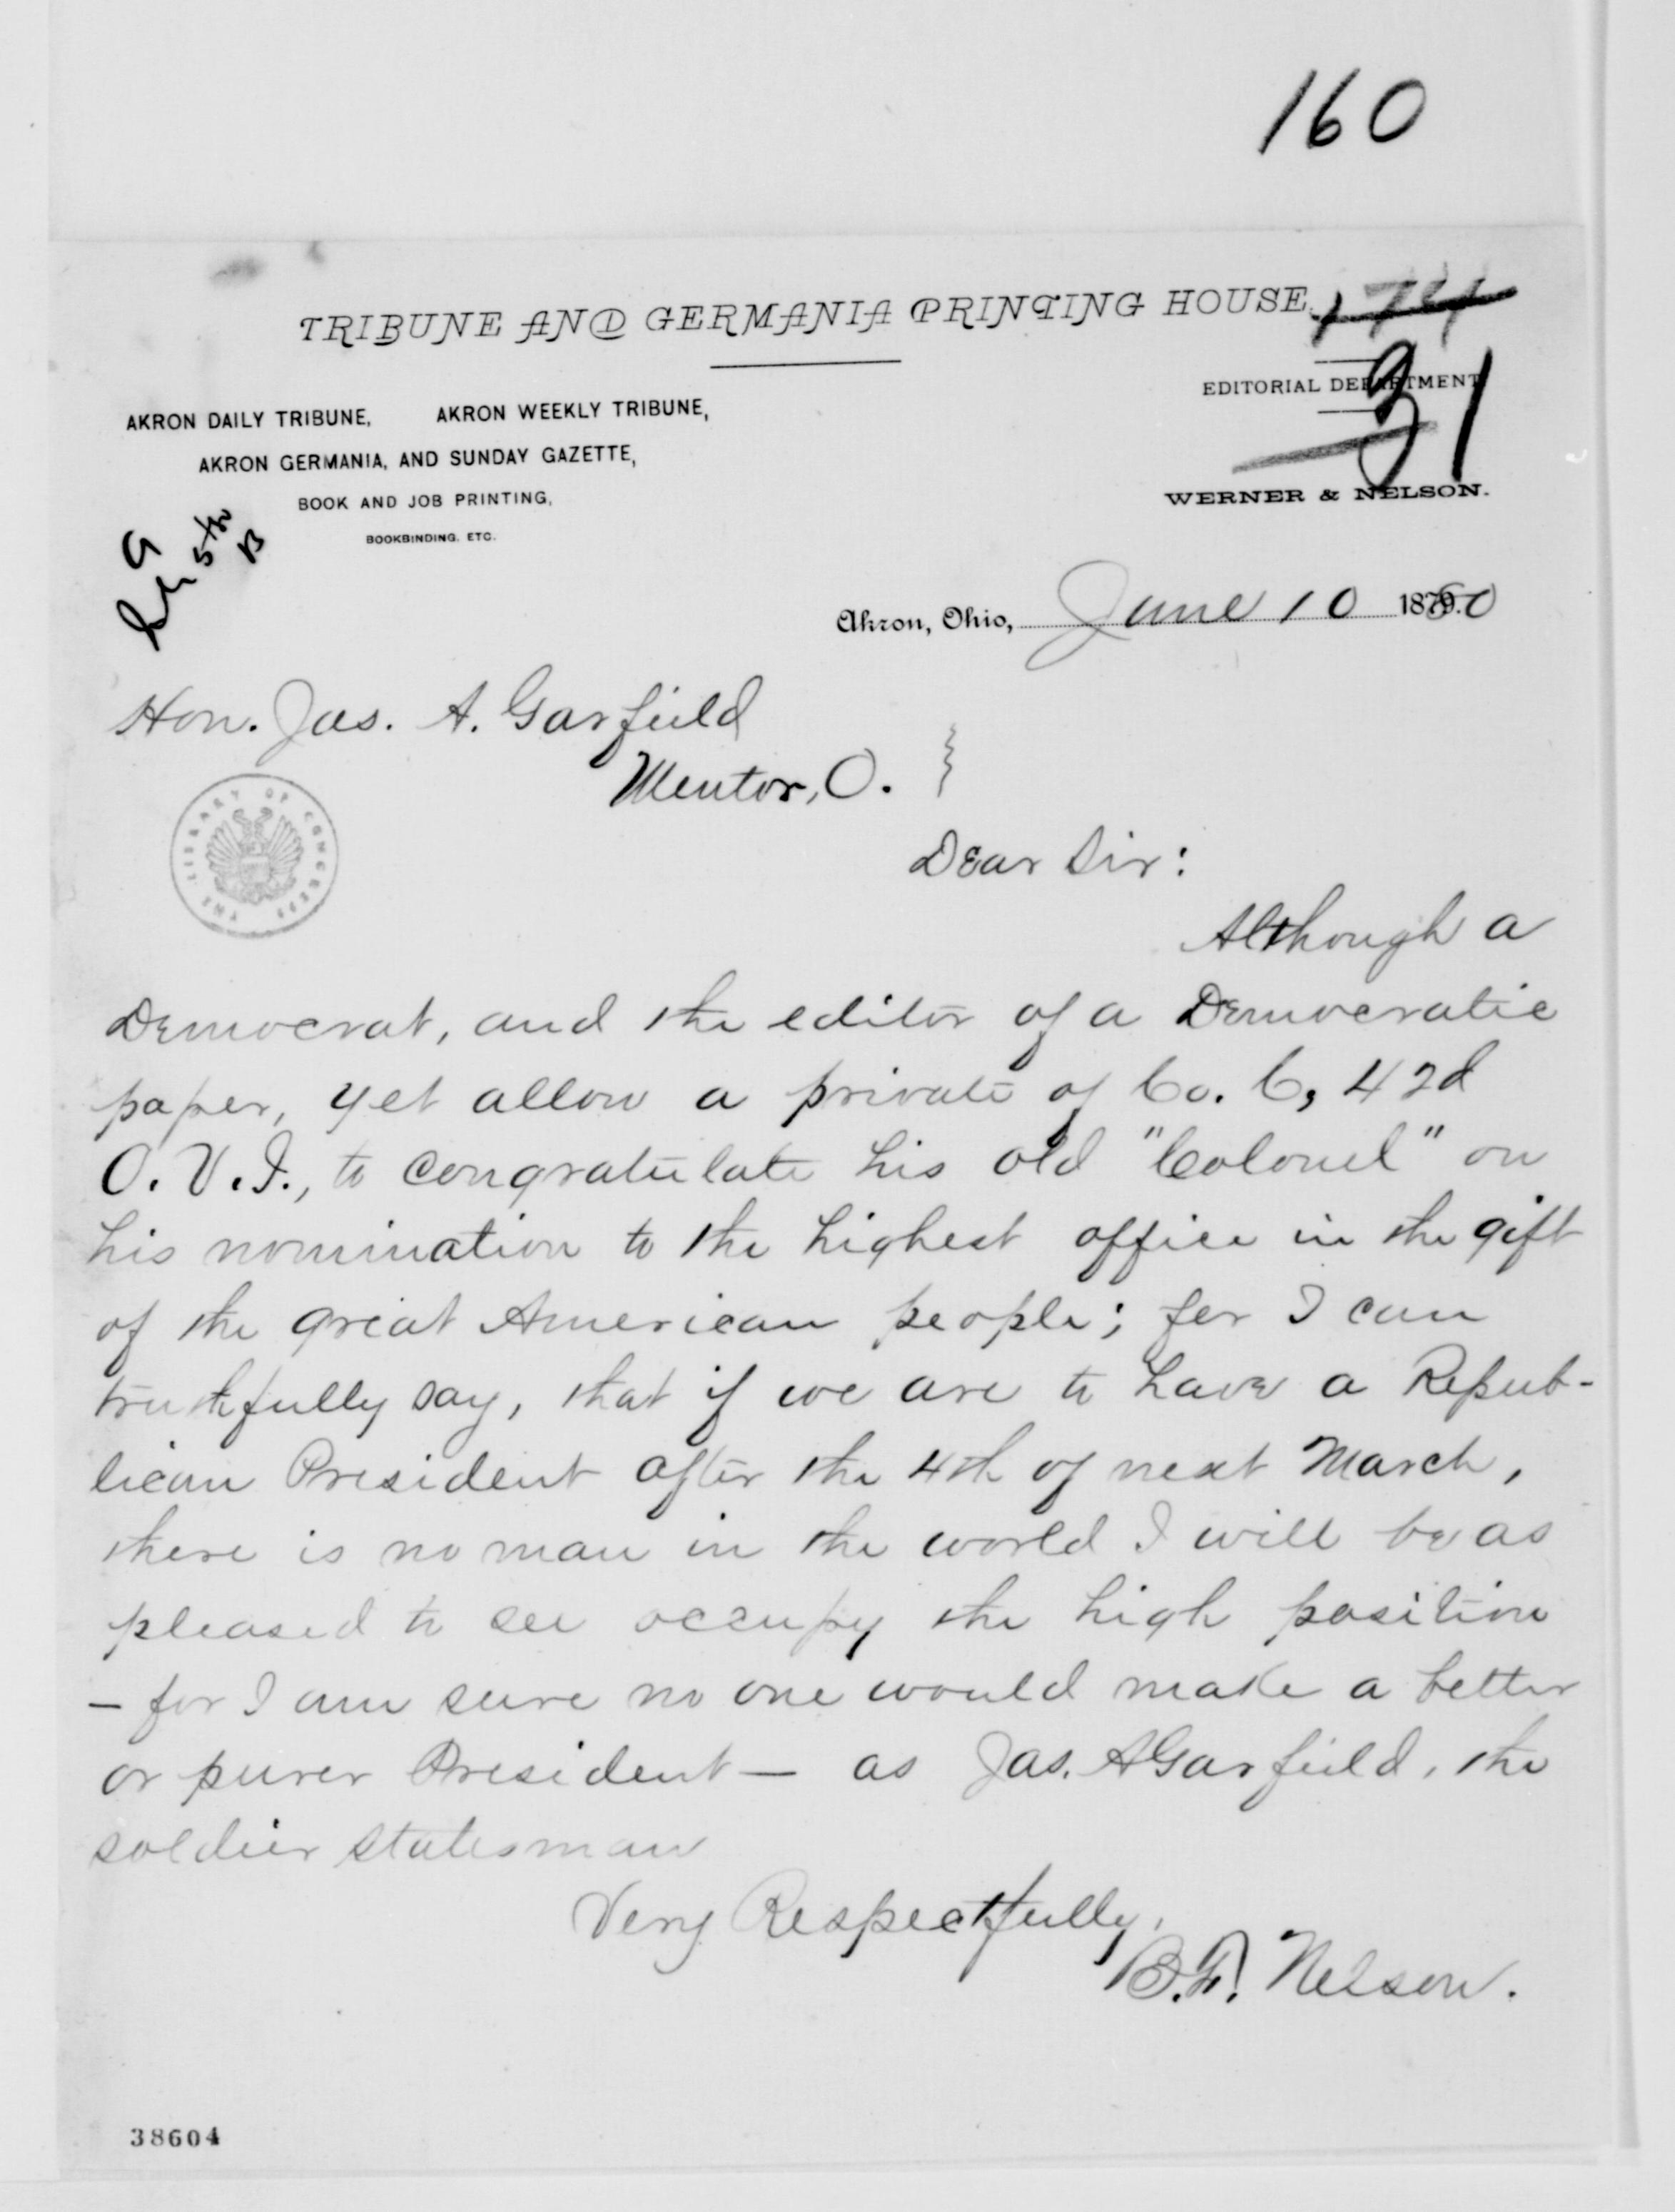 160
TRIBUNE AND GERMANIA PRINTING HOUSE.
174
EDITORIAL DEPARTMENT
31
AKRON DAILY TRIBUNE, AKRON WEEKLY TRIBUNE,
AKRON GERMANIA, AND SUNDAY GAZETTE,
BOOK AND JOB PRINTING,
BOOKBINDING. ETC.
WERNER & NELSON.
Akron, Ohio, June 10 1880
Hon. Jas. A. Garfield
Mentor, O.
THE LIBRARY OF CONGRESS
Dear Sir:
Although a
Democrat, and the editor of a Democratic
paper, yet allow a private of Co. C, 42d
O. V. I., to congratulate his old "Colonel" on
his nomination to the highest office in the gift
of the great American people; for I can
truthfully say, that if we are to have a Repub-
lican President after the 4th of next March,
there is no man in the world I will be as
pleased to see occupy the high position
– for I am sure no one would make a better
or purer President – as Jas. A Garfield, the
soldier statesman
Very Respectfully,
B.F. Nelson.
38604